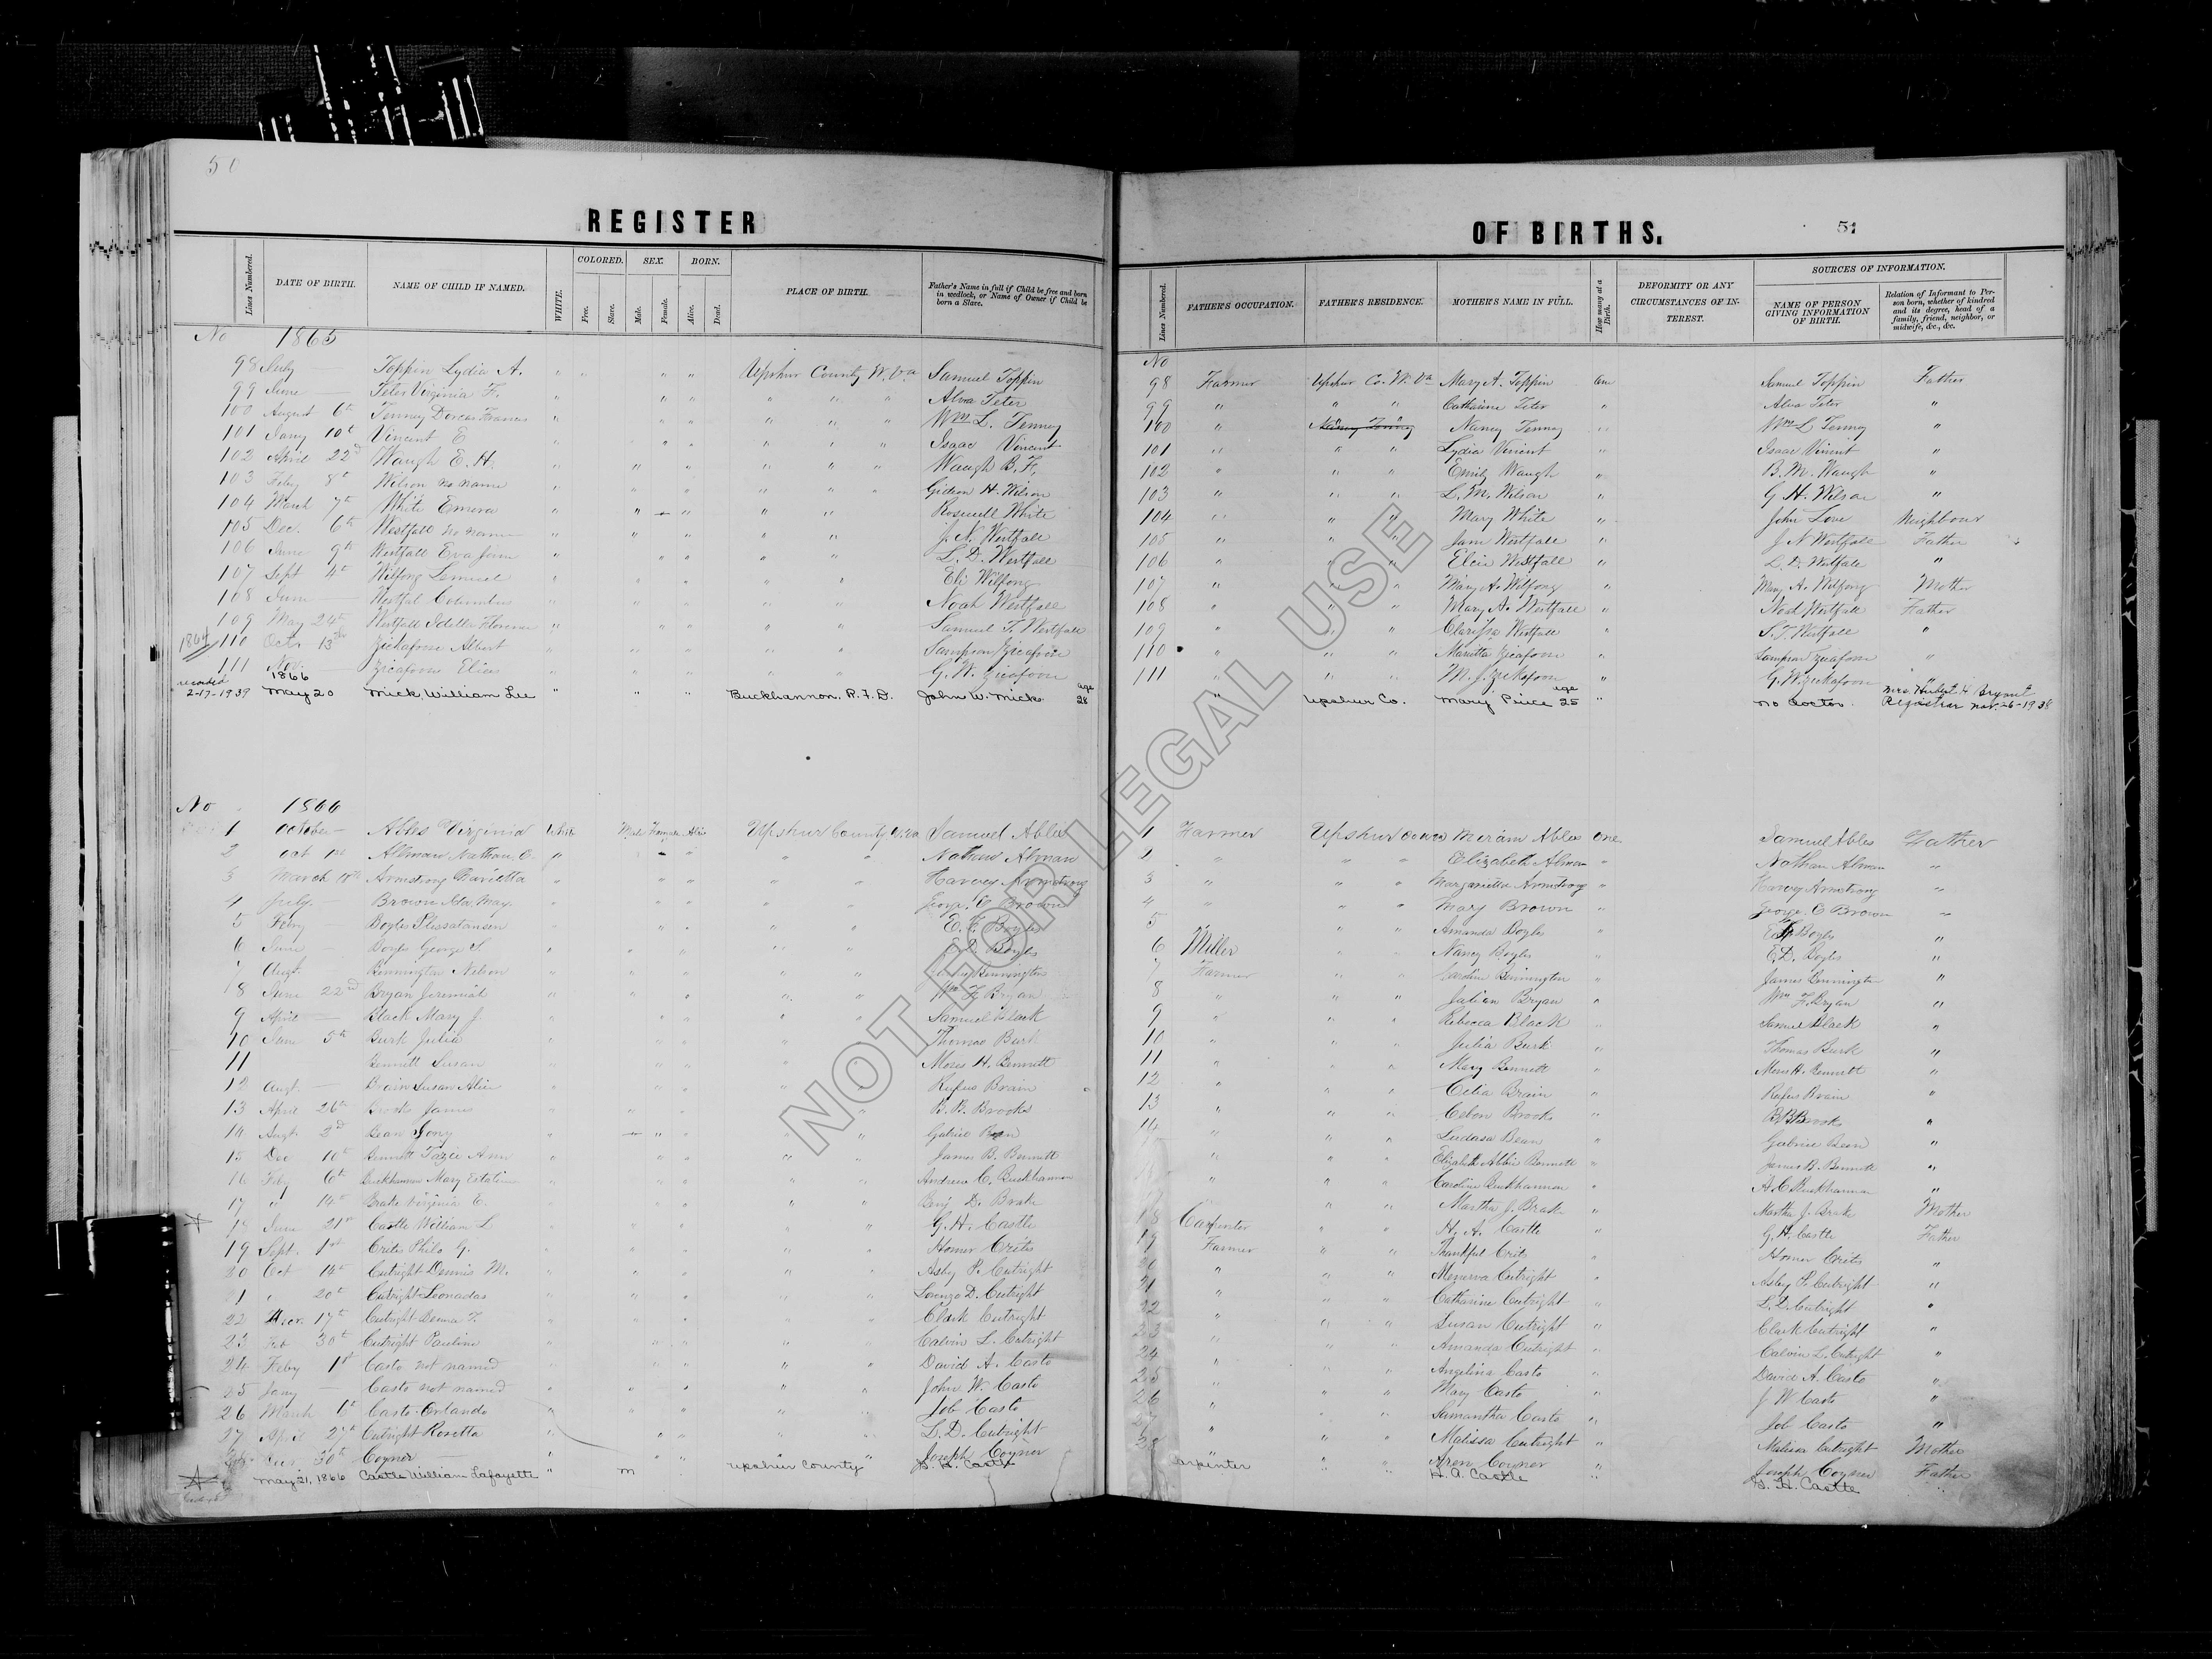 50
REGISTER
Lines Numbered. DATE OF BIRTH. NAME OF CHILD IF NAMED. WHITE. COLORED. Free. Slave. SEX. Male. Female. BORN. Alive. Dead. PLACE OF BIRTH. Father's Name in full if Child be free and born in wedlock, or Name of Owner if Child be born a Slave.
No 1865
98 July — Toppin Lydia A. " " " " Upshur County W. Va Samuel Toppin
99 June — Teter Virginia F. " " " " " " Alva Teter
100 August 6th Tenney Dorcas Frances " " " " " " Wm L. Tenney
101 Jany 10th Vincent E " " " " " " Isaac Vincent
102 April 22d Waugh E. H. " " " " " " Waugh B. F.
103 Feby 8th Wilson no name " " " " " " Gideon H. Wilson
104 March 7th White Emera " " " " " Roswell White
105 Dec. 6th Westfall no name " " " " " J. N. Westfall
106 June 9th Westfall Eva " " " " " L. D. Westfall
107 Sept 4th Wilfong Lemuel " " " " " Eli Wilfong
108 June — Westfal Columbus " " " " " Noah Westfall
109 May 24th Westfall Idella Florence " " " " " Samuel T. Westfall
1864 110 Oct. 13th Zickafoose Albert " " " " " Sampson Zicafoose
111 Nov. — Zicafoose Elias " " " " " G. W. Zicafoose
recorded 2-17-1939 1866 May 20 Mick William Lee " " " Buckhannon, R. F. D. John W. Mick age 28
No 1866
1 October — Ables Virginia White Male Female Alive Upshur County W. Va Samuel Ables
2 Oct 1st Allman Nathan C. " " " " Nathan Alman
3 March 18th Armstrong " " " " " Harvey Armstrong
4 July — Brown Ida May " " " " " George C Brown
5 Feby — Boyles " " " " " E. F. Boyles
6 June — Boyles George S. " " " " " E. D. Boyles
7 Augt. Bennington Nelson " " " " " James Bennington
8 June 22nd Bryan Jeremiah " " " " " Wm F. Bryan
9 April — Black Mary J. " " " " " Samuel Black
10 June 5th Burk Julia " " " " " Thomas Burk
11 Bennett Susan " " " " " Moses H. Bennett
12 Augt — Brain Susan Alice " " " " " Rufus Brain
13 April 26th Brooks James " " " " " B. B. Brooks
14 Augt 2d Bean " " " " " Gabriel Bean
15 Dec 10th Bennett Ann " " " " " James B. Bennett
16 Feby 6th Buckhannon Mary " " " " " Andrew C. Buckhannon
17 " 14th Brake Virginia E. " " " " " Benj. D. Brake
18 June 21st Castle William L " " " " " G. H. Castle
19 Sept. 1st Crites Philo G. " " " " " Homer Crites
20 Oct 14th Cutright Dennis M. " " " " " Asby P. Cutright
21 " 20th Cutright Leonadas " " " " " Lorenzo D. Cutright
22 Decr. 17th Cutright " " " " " Clark Cutright
23 30th Cutright Pauline " " " " " Calvin L. Cutright
24 Feby 1st Casto not named " " " " " David A. Casto
25 Jany — Casto not named " " " " " John W. Casto
26 March Casto Orlando " " " " " Job Casto
27 April 27th Cutright Rosetta " " " " " L. D. Cutright
28 30th Coyner — " " " " " Joseph Coyner
May 21, 1866 Castle William Lafayette " m Upshur County G. H. Castle
51
OF BIRTHS.
Lines Numbered. FATHER'S OCCUPATION. FATHER'S RESIDENCE. MOTHER'S NAME IN FULL. How many at a Birth. DEFORMITY OR ANY CIRCUMSTANCES OF INTEREST. SOURCES OF INFORMATION. NAME OF PERSON GIVING INFORMATION OF BIRTH. Relation of Informant to Person born, whether of kindred and its degree, head of a family, friend, neighbor, or midwife, &c., &c.
No
98 Farmer Upshur Co. W. Va Mary A. Toppin One Samuel Toppin Father
99 " " " Catharine Teter " Alva Teter "
100 " Nancy Tenney Nancy Tenney " Wm L Tenney "
101 " " " Lydia Vincent " Isaac Vincent "
102 " " " Emily Waugh " B. M. Waugh "
103 " " " L. M. Wilson " G H. Wilson "
104 " " " Mary White " John Love Neighbour
105 " " " Jane Westfall " J N Westfall Father
106 " " " Westfall " L. D. Westfall "
107 " " " Mary A. Wilfong " Mary A. Wilfong Mother
108 " " " Mary A. Westfall " Noah Westfall Father
109 " " " Clarissa Westfall " S. T. Westfall "
110 " " " Marietta Zicafoose " Sampson Zicafoose "
111 " " " M. J. Zickafoose " G. W. Zickafoose "
" Upshur Co. Mary Price age 25 " no doctor. Mrs. Hubert H Bryant Registrar Nov. 26-1938
1 Farmer Upshur Co W Va Meriam Ables One Samuel Ables Father
2 " " " Elizabeth Alman " Nathan Alman "
3 " " " Margaretta Armstrong " Harvey Armstrong "
4 " " " Mary Brown " George C Brown "
5 " " " Amanda Boyles " E F Boyles "
6 Miller " " Nancy Boyles " E. D. Boyles "
7 Farmer " " Caroline Bennington " James Bennington "
8 " " " Julian Bryan " Wm F. Bryan "
9 " " " Rebecca Black " Samuel Black "
10 " " " Julia Burk " Thomas Burk "
11 " " " Mary Bennett " Moses H. Bennett "
12 " " " Celia Brain " Rufus Brain "
13 " " " Brooks " B B Brooks "
14 " " " Bean " Gabriel Bean "
" " " Elizabeth Abbie Bennett " James B. Bennett "
" " " Caroline Buckhannon " A. C. Buckhannon "
" " Martha J. Brake " Martha J. Brake Mother
18 Carpenter " " H. A. Castle " G. H. Castle Father
19 Farmer " " Thankful Crites " Homer Crites "
20 " " " Menerva Cutright " Asby P. Cutright "
21 " " " Catharine Cutright " L. D. Cutright "
22 " " " Susan Cutright " Clark Cutright "
23 " " " Amanda Cutright " Calvin L. Cutright "
24 " " " Angelina Casto " David A. Casto "
25 " " " Mary Casto " J W Casto "
26 " " " Samantha Casto " Job Casto "
27 " " " Malissa Cutright " Malissa Cutright Mother
28 " " " Coyner " Joseph Coyner Father
Carpenter " " H. A. Castle " G. H. Castle "
NOT FOR LEGAL USE